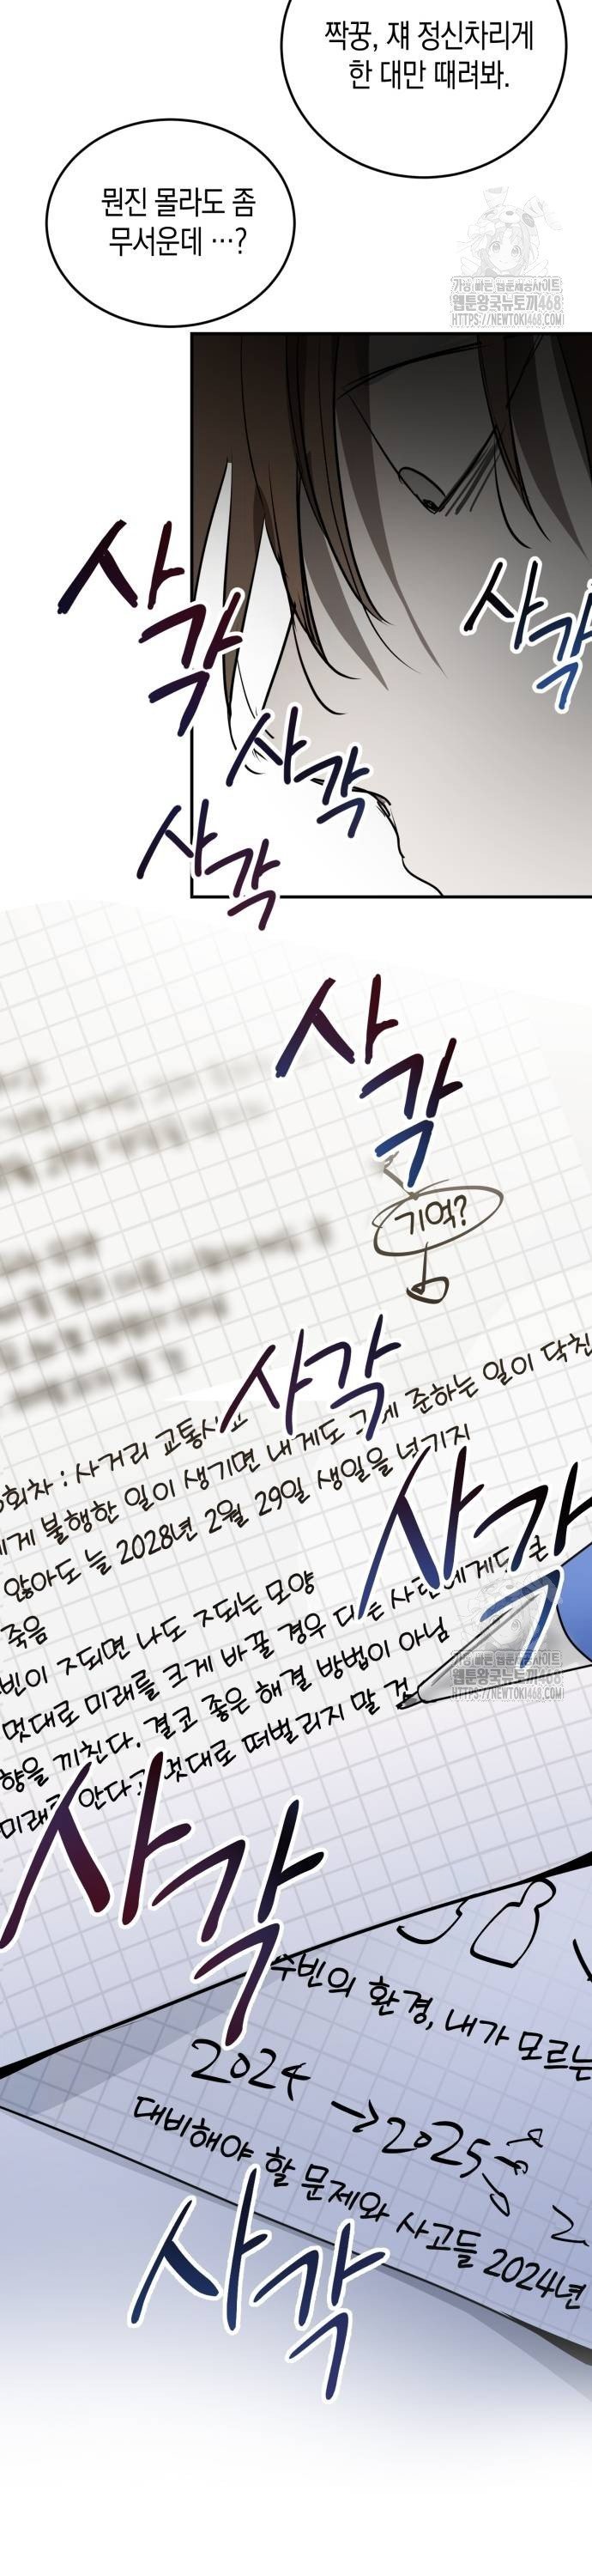 짝꿍, 쟤 정신차리게
한 대만 때려봐.
뭔진 몰라도 좀
무서운데 …?
웹툰왕국뉴토끼468
HTTPS://NEWTOKI468
사각
사각
사각
사각
사각
기억?
사각
회차 : 사거리 교통사고
에게 불행한 일이 생기면 내게도 그에 준하는 일이 닥친
않아도 늘 2028년 2월 29일 생일을 넘기지
죽음
사각
빈이 ㅈ되면 나도 ㅈ되는 모양
멋대로 미래를 크게 바꿀 경우 다른 사람에게도 큰
향을 끼친다. 결코 좋은 해결 방법이 아님
미래를 안다고 멋대로 떠벌리지 말 것
웹툰왕국뉴토끼468
HTTPS://NEWTOKI468
사각
수빈의 환경, 내가 모르는
2024 → 2025
대비해야 할 문제와 사고들 2024년
사각
웹툰왕국뉴토끼468
HTTPS://NEWTOKI468